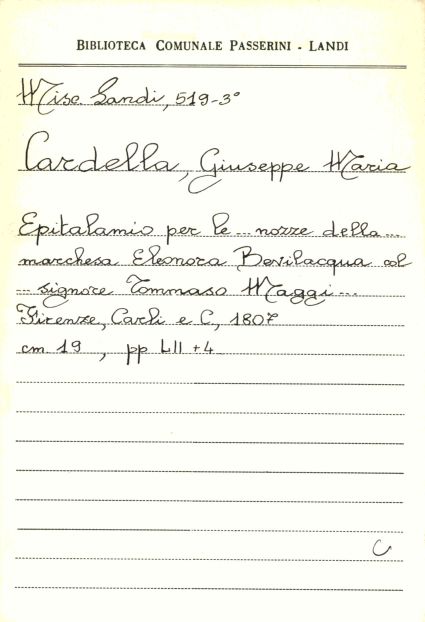 BIBLIOTECA COMUNALE PASSERINI - LANDI
Misc. Landi, 519-3°
Cardella, Giuseppe Maria
Epitalamio per le ... nozze della ...
marchesa Eleonora Bevilacqua col
... signore Tommaso Maggi ...
Firenze, Carli e C, 1807
cm 19 , pp LII + 4
C